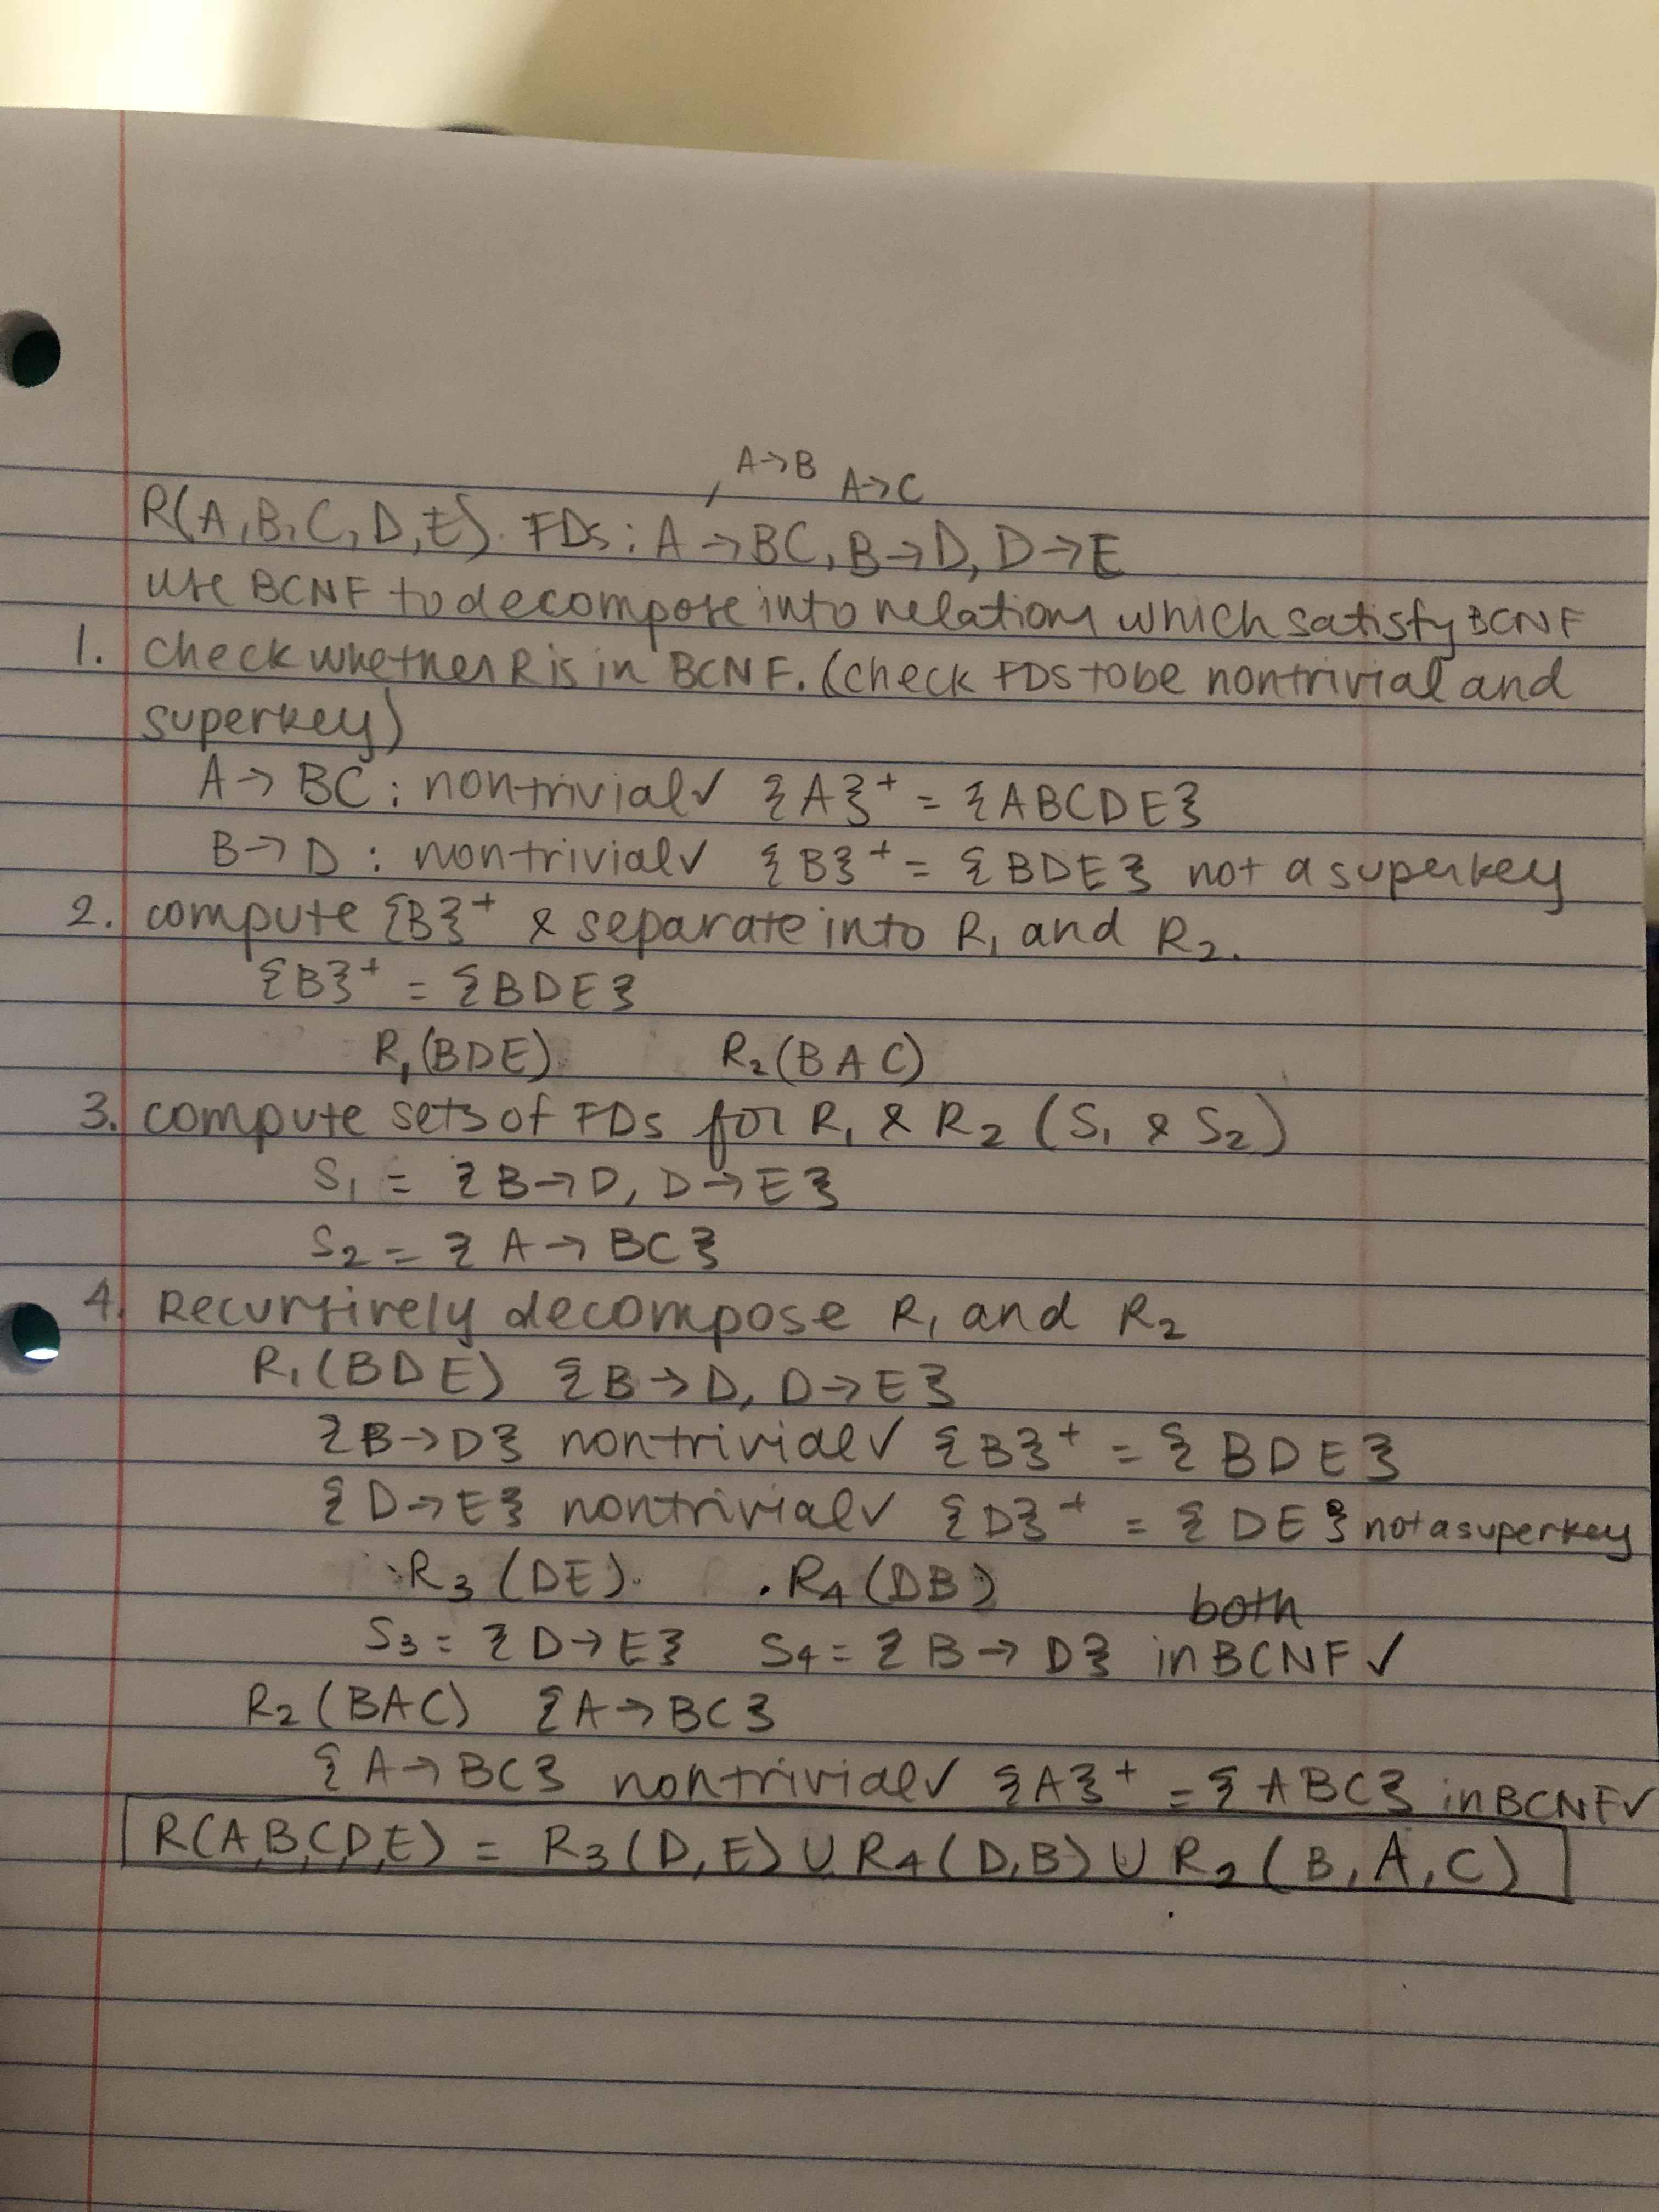 A→B A→C
R(A,B,C,D,E). FDs: A→BC, B→D, D→E
use BCNF to decompose into relations which satisfy BCNF
1. check whether R is in BCNF. (check FDs to be nontrivial and
superkey)
A→BC: nontrivial✓ {A}⁺ = {ABCDE}
B→D: nontrivial✓ {B}⁺ = {BDE} not a superkey
2. compute {B}⁺ & separate into R₁ and R₂.
{B}⁺ = {BDE}
R₁(BDE) R₂(BAC)
3. compute sets of FDs for R₁ & R₂ (S₁ & S₂)
S₁ = {B→D, D→E}
S₂ = {A→BC}
4. Recursively decompose R₁ and R₂
R₁(BDE) {B→D, D→E}
{B→D} nontrivial✓ {B}⁺ = {BDE}
{D→E} nontrivial✓ {D}⁺ = {DE} not a superkey
R₃(DE). .R₄(DB)
both
S₃ = {D→E} S₄ = {B→D} in BCNF✓
R₂(BAC) {A→BC}
{A→BC} nontrivial✓ {A}⁺ = {ABC} in BCNF✓
R(A,B,C,D,E) = R₃(D,E) ∪ R₄(D,B) ∪ R₂(B,A,C)